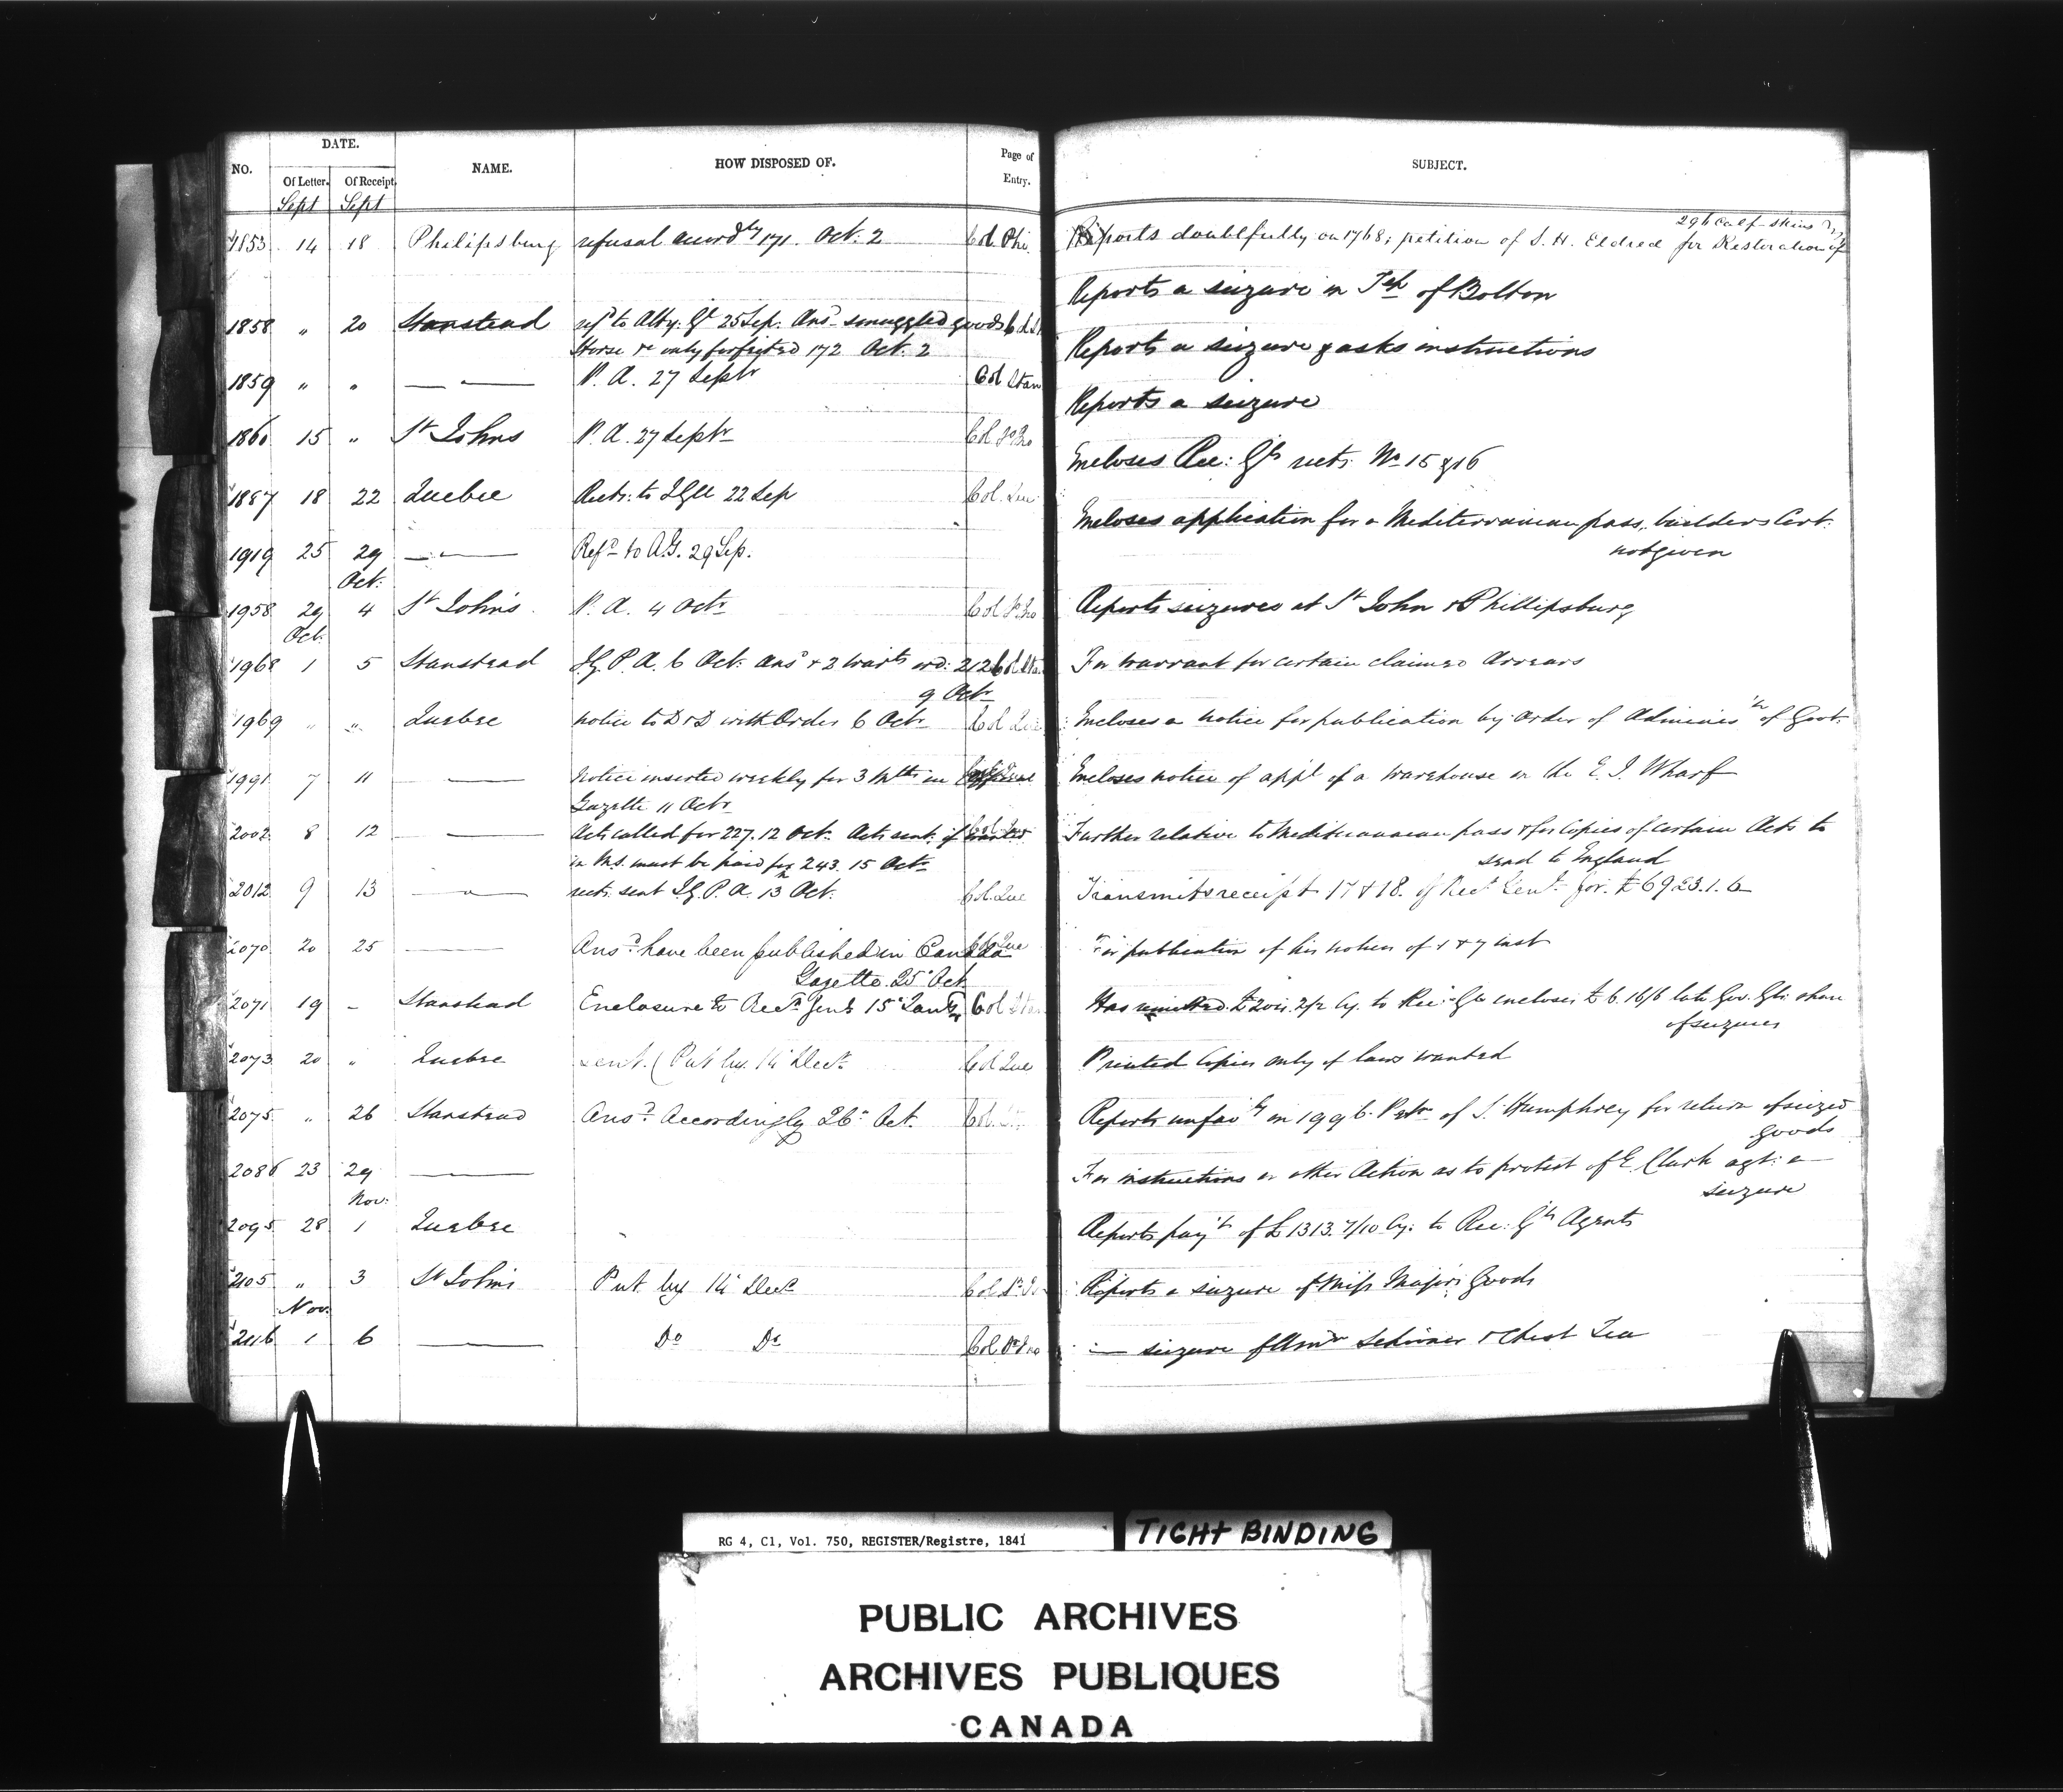 NO. DATE. NAME. HOW DISPOSED OF. Page of Entry. SUBJECT.
Of Letter. Of Receipt.
Sept Sept
296 Calf-skins
1853 14 18 Philipsburg refusal accordly 171. Oct. 2 Col. Phi. Reports doubtfully on 1768; petition of S. H. Eldred for Restoration of
Reports a seizure in Tp of Bolton
1858 " 20 Stanstead refd to Atty. Gl 25 Sep. Ansd smuggled goods Col St
Horse &c only forfeited 172 Oct. 2
Reports a seizure & asks instructions
1859 " " — — P. A. 27 Septr Col Stan
Reports a seizure
1860 15 " St Johns P. A. 27 Septr Col St Jno
Encloses Rec: Gls rects. No 15 & 16
1887 18 22 Quebec Rects: to IGU 22 Sep Col. Que
Encloses application for a Mediterranean pass, builders Cert.
not given
1919 25 29 — Refd to A.G. 29 Sep.
Oct.
1958 29 4 St John's P. A. 4 Octr Col St Jno Reports seizures at St John & Phillipsburg
Oct.
1968 1 5 Stanstead I.G. P. A. 6 Oct. ansd & 2 warts ord: 212 Col Sta. For warrant for certain claimed Arrears
9 Octr
1969 " " Quebec notice to D & D with Order 6 Octr Col Que Encloses a notice for publication by order of Adminisr of Govt.
1991 7 11 — Notice inserted weekly for 3 Mths in Encloses notice of appt of a Warehouse on the E. I. Wharf
Gazette 11 Octr
2002 8 12 — Acts called for 227. 12 Oct. Acts sent, if Further relative to Mediterranean pass & for Copies of certain Acts to
send to England
in M.S. must be paid for 243. 15 Octr
2012 9 13 — rects. sent I.G. P. A. 13 Oct. Col. Que Transmits receipt 17 & 18. of Rect Genl. for. £6923.1.6
2070 20 25 — Ansd have been published in Canada Col Que For publication of his notices of 1 & 7 inst
Gazette. 25 Oct
2071 19 - Stanstead Enclosure to Recr Genl 15 Col Sta Has remitted Cy. to Rec: Gl encloses £6.16/6 late Gov. Gls. share
of seizures
2073 20 " Quebec sent. (Put by. 14 Decr Col Que Printed Copies only of laws wanted
2075 " 26 Stanstead Ansd Accordingly 26 Oct. Col. St. Reports unfavly on 1996. Petn of S. Humphrey for return of seized
goods
2086 23 29 — For instructions or other Action as to protest of E. Clark agt: a
seizure
Nov.
2095 28 1 Quebec Reports paymt of £1313.7/10 Cy: to Rec: Gls Agents
2105 " 3 St John's Put by 14 Decr Col St Jno Reports a seizure of Miss Major's Goods
Nov.
2116 1 6 — Do Do Col St Jno — seizure of Schooner & Chest Tea
RG 4, C1, Vol. 750, REGISTER/Registre, 1841
TIGHT BINDING
PUBLIC ARCHIVES
ARCHIVES PUBLIQUES
CANADA